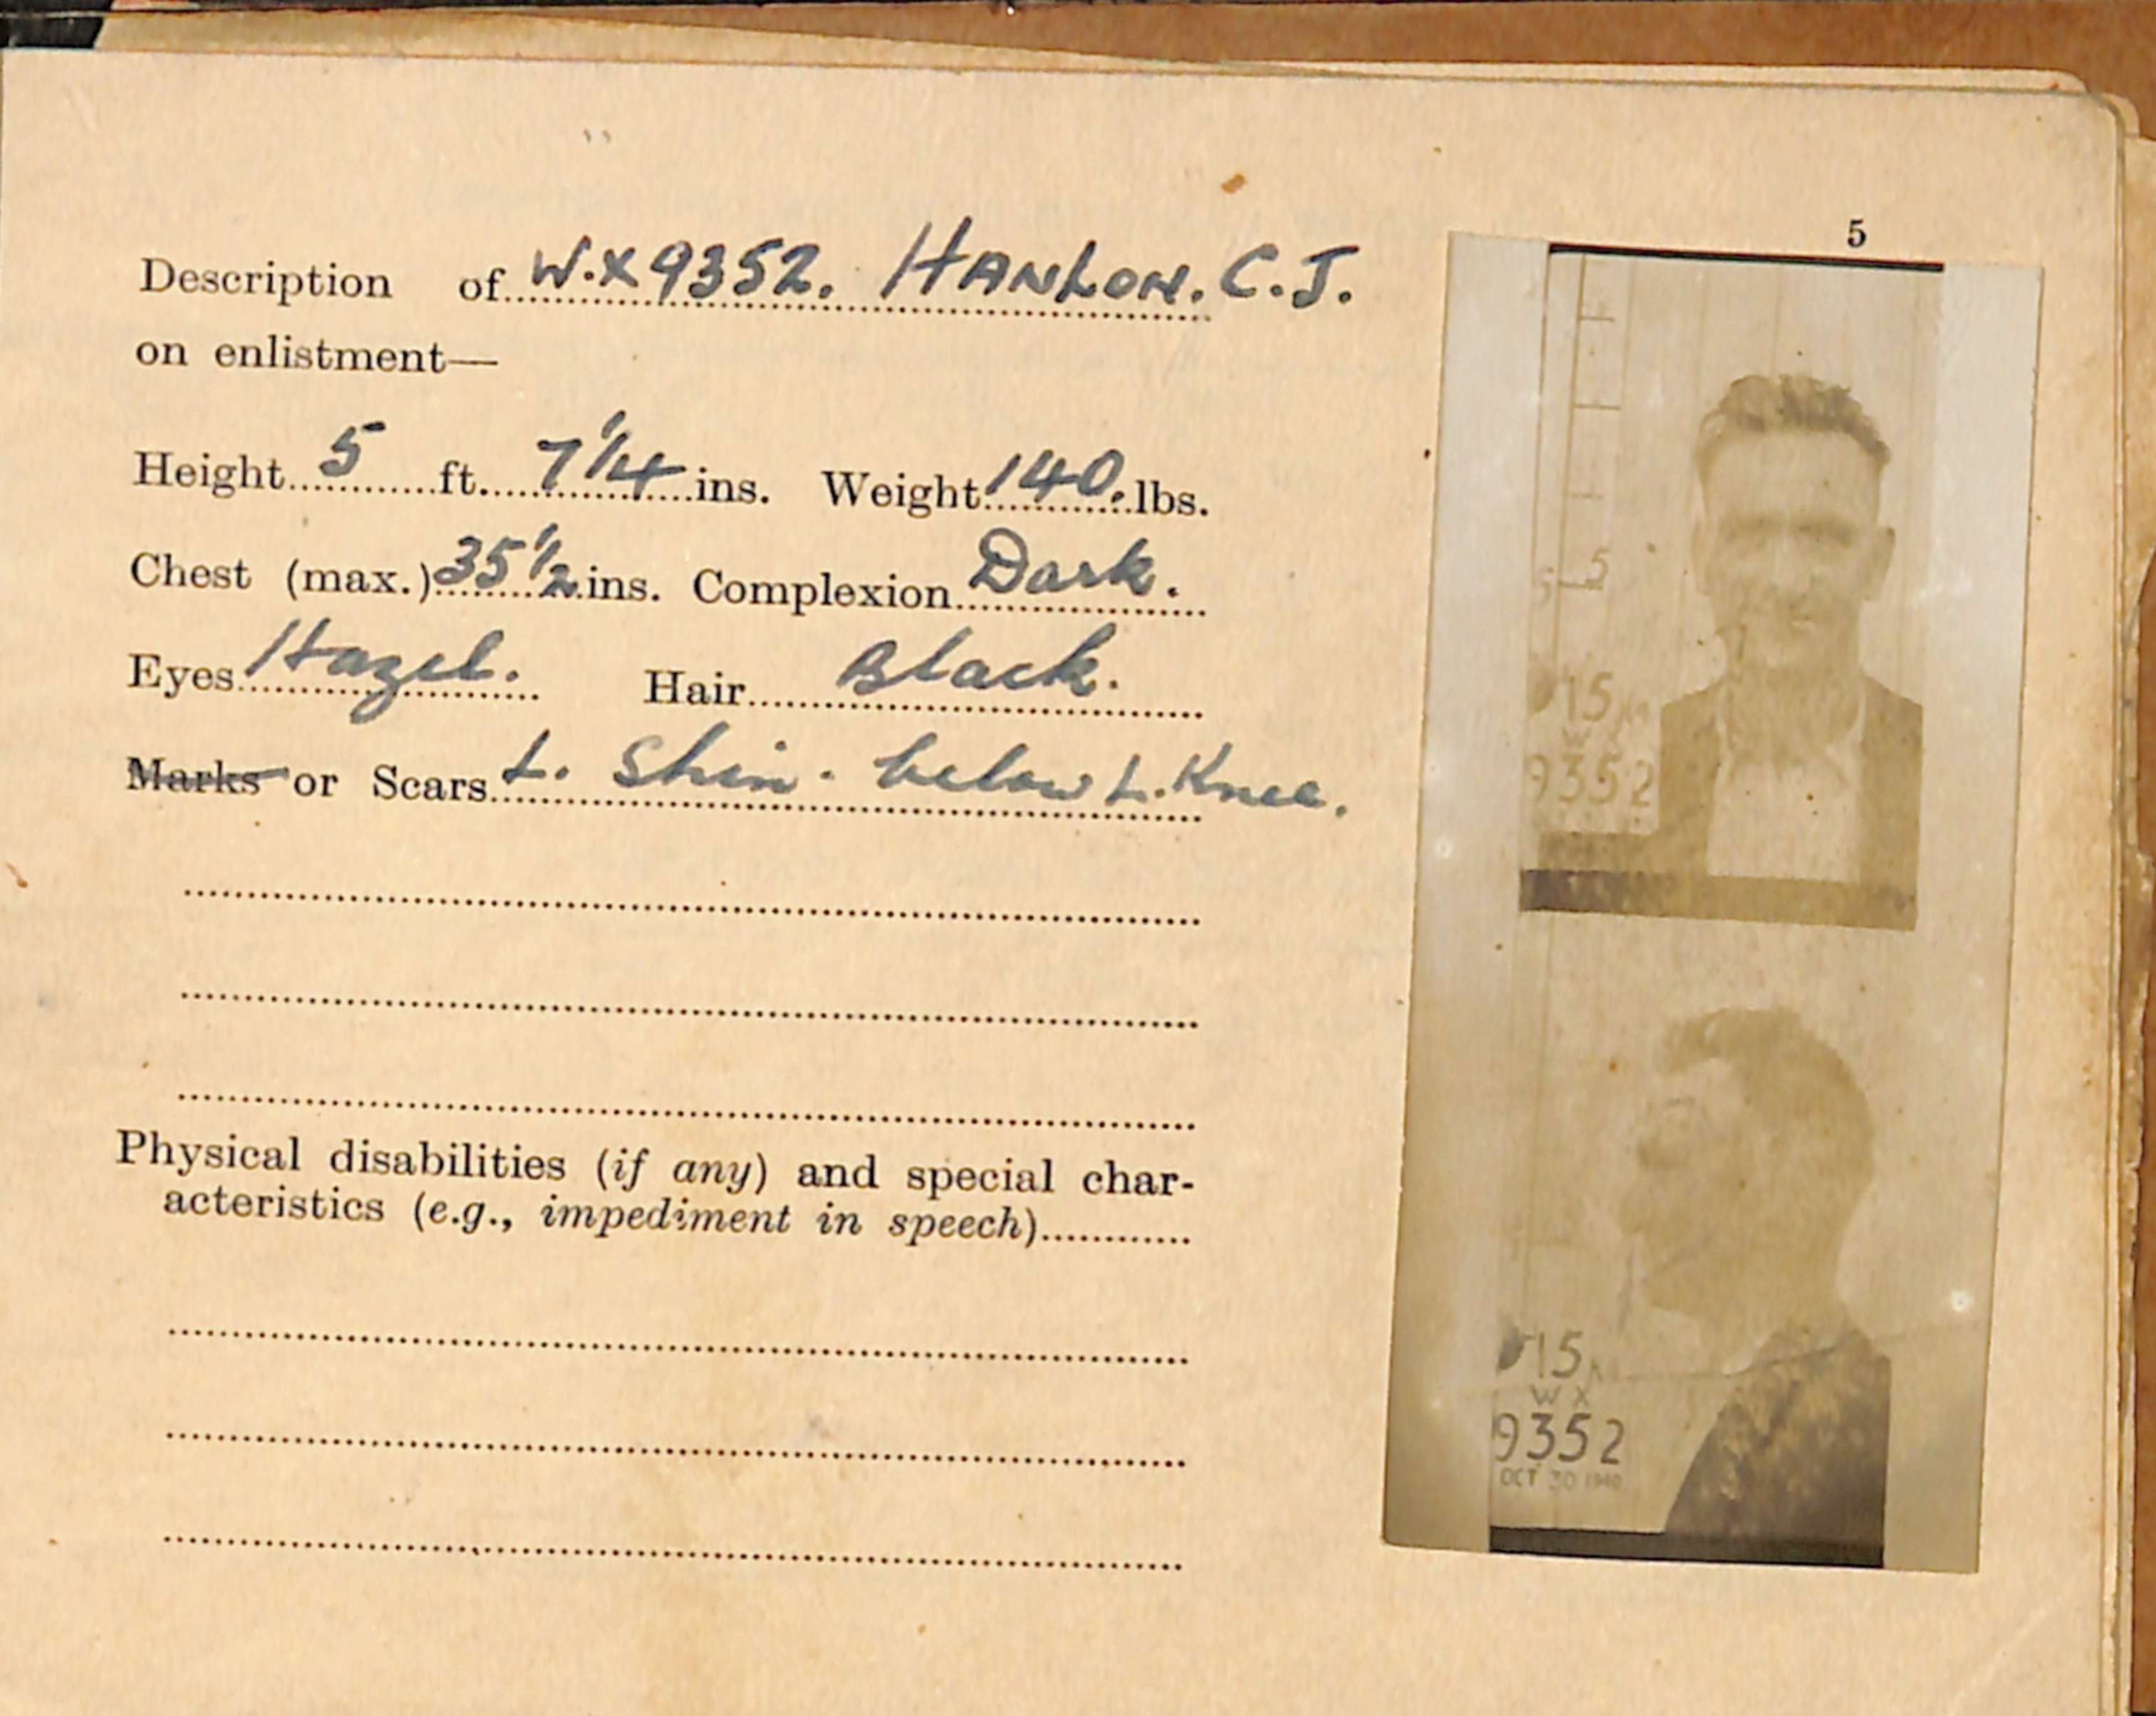 5
Description of W.X9352. HANLON. C.J.
on enlistment—
Height 5 ft. 7 1/4 ins. Weight 140. lbs.
Chest (max.) 35 1/2 ins. Complexion Dark.
Eyes Hazel. Hair Black.
Marks or Scars L. Shin. below L. Knee.
Physical disabilities (if any) and special char-
acteristics (e.g., impediment in speech)
5
15
9352
15
WX
9352
OCT 30 1940